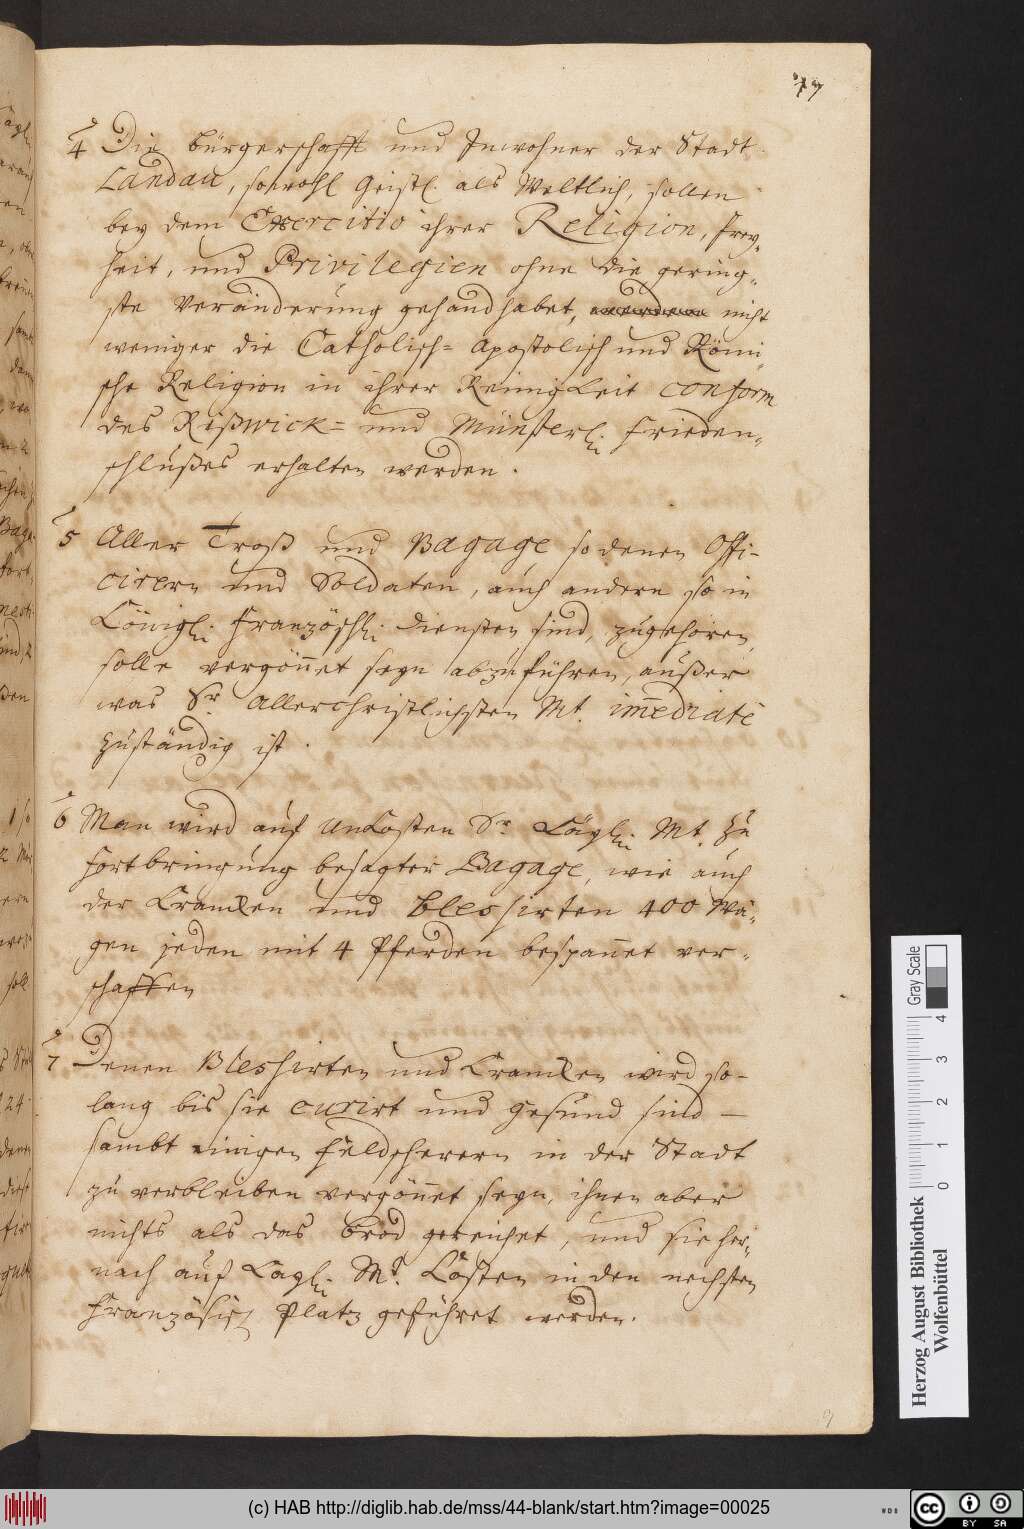 4 Die bürgerschafft und Inwohner der Stadt
Landau, sowohl Geistl. als Weltlich, sollen
bey dem Exercitio ihrer Religion, frey-
heit, und Privilegien ohne die gering-
ste Veränderung gehandhabet, nicht
weniger die Catholisch= Apostolisch und Römi-
sche Religion in ihrer Reinigkeit conform
des Rißwick= und Münsterl: frieden-
schlußes erhalten werden.
5 Aller Troß und Bagage, so denen Offi-
cirern und Soldaten, auch andern so in
Königl: französchl: diensten sind, zugehören,
solle vergönnet seyn abzuführen, außer
was Sr. Allerchristlichsten Mt. immediatè
zuständig ist.
6 Man wird auf Unkosten Sr Kayl: Mt. zu
fortbringung besagter Bagage, wie auch
der Krancken und blessirten 400 Wä-
gen jeden mit 4 Pferden bespannet ver-
schaffen
7 Denen Blessirten und Krancken wird so-
lang bis sie curirt und gesund sind —
sambt einigen feldscherern in der Stadt
zu verbleiben vergönnet seyn, ihnen aber
nichts als das brod gereichet, und sie her-
nach auf Kayl: Mt. Kosten in den nechsten
französis. Platz geführet werden.
9
Herzog August Bibliothek
Wolfenbüttel
0 1 2 3 4
Gray Scale
(c) HAB http://diglib.hab.de/mss/44-blank/start.htm?image=00025
WDB
cc BY SA